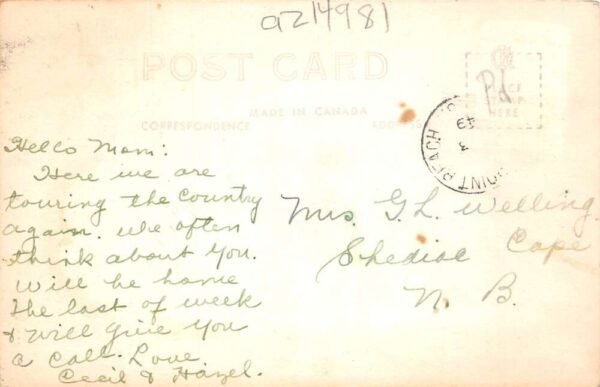 az14981
POST CARD
MADE IN CANADA
CORRESPONDENCE
ADDRESS
Pd
PLACE
STAMP
HERE
POINT BEACH
3
49
Hello Mom:
Here we are
touring the country
again. We often
think about you.
Will be home
the last of week
& will give you
a call. Love
Cecil & Hazel.
Mrs. G.L. Welling.
Shediac Cape
N. B.